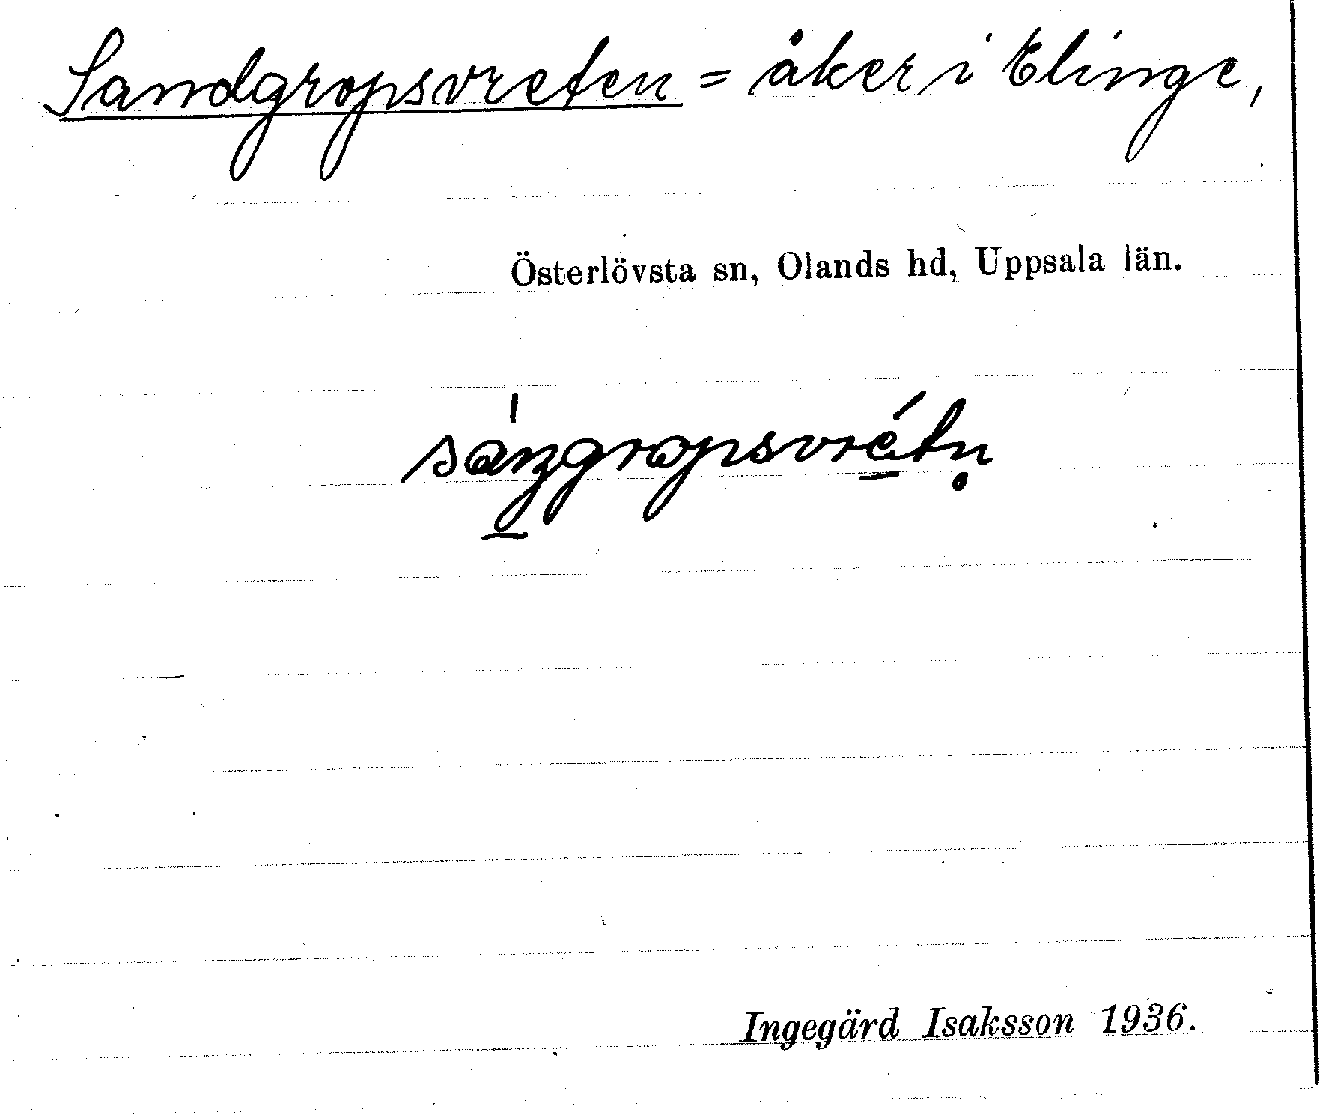 Sandgropsvreten = åker i Elinge,
Österlövsta sn, Olands hd, Uppsala län.
Ingegärd Isaksson 1936.